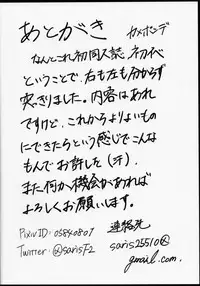 あとがき
カメホンデ
なんとこれ初同人誌 初代
ということで、右も左も分からず
突っきりました。内容はあれ
ですけど、これからよりよいもの
にできたらという感じでこんな
もんでお許し(汗)。
また何か機会があれば
よろしくお願いします。
Pixiv ID: 05840807
連絡先
Twitter: @saris72
saris25510@
gmail.com.